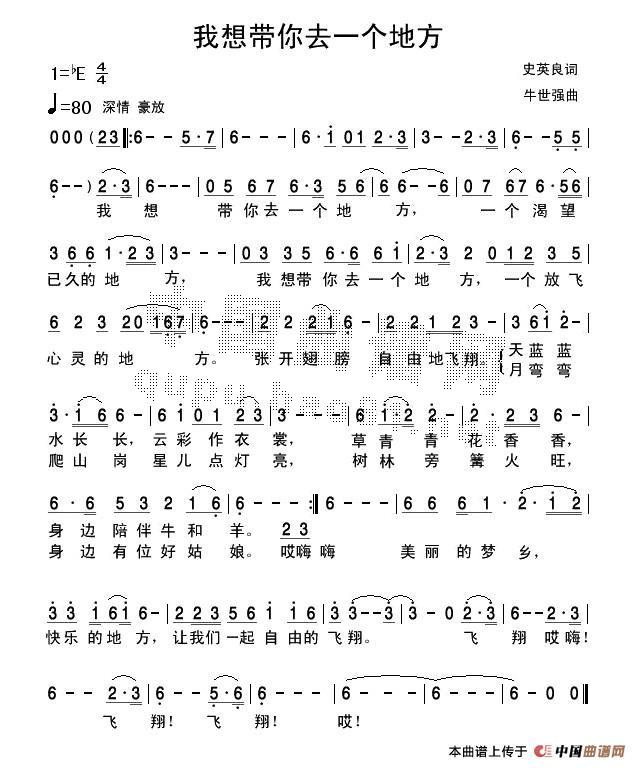 我想带你去一个地方
1=♭E 4/4
史英良词
♩=80 深情 豪放
牛世强曲
000(23|:6-- 5·7|6---|6·i 01 2·3|3-- 2·3|6-- 55|
6--)2·3|6---|05 67 6·3 56|66--|07 67 6·56|
我 想 带你去一个地 方, 一个渴望
3 66 1·23|3---|03 35 6·6 6i|2·3 2 012 35|
已久的 地 方, 我想带你去一个地 方, 一个放飞
6 2 3 20 167|6---|2 2 21 6|2 21 23-|3 6i 2-|
心灵的地 方。 张开翅膀 自由地飞翔。 天蓝蓝
月弯弯
3·i 6|6i 01 23|6 i·2|2·6|
水长长,云彩作衣裳, 草青青花香香,
爬山岗星儿点灯亮, 树林旁篝火旺,
6·6 53 2 16|6---:|6-- 23|6 66 61·|2·i2|
身边陪伴牛和 羊。
身边有位好姑 娘。哎嗨嗨 美丽的梦乡,
33 i6i 6-|2223 56 i6i|3 3--3|3-0 2·3|6-- 23|
快乐的地方,让我们一起自由的飞翔。 飞 翔哎嗨!
6-- 2·3|6---|6-- 5·6|6---|6---|6---|6-00‖
飞 翔! 飞 翔! 哎!
本曲谱上传于 中国曲谱网